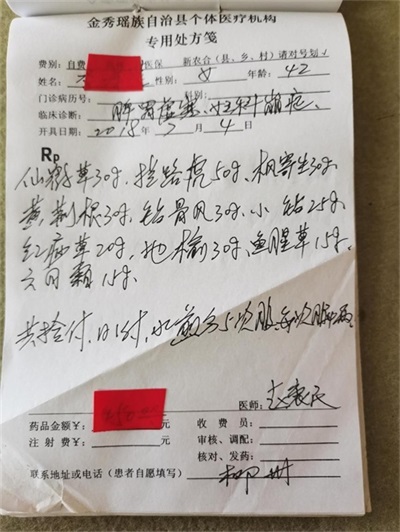 金秀瑶族自治县个体医疗机构
专用处方笺
费别：自费 医保 新农合（县、乡、村）请对号划√
姓名： 性别：女 年龄：42
门诊病历号： 科别：
临床诊断：脾胃虚寒、妇科崩症、
开具日期：2018年7月4日
Rp
仙鹤草30g、拦路虎50g、枫寄生30g
黄荆根30g、钻骨风30g、小钻25g
红病草20g、地榆30g、鱼腥草15g、
六月霜15g.
共拾付，日1付，水煎分5次服，每次
医师：
药品金额￥： 元 收费员：
注射费￥： 元 审核、调配：
核对、发药：
联系地址或电话（患者自愿填写） 柳州